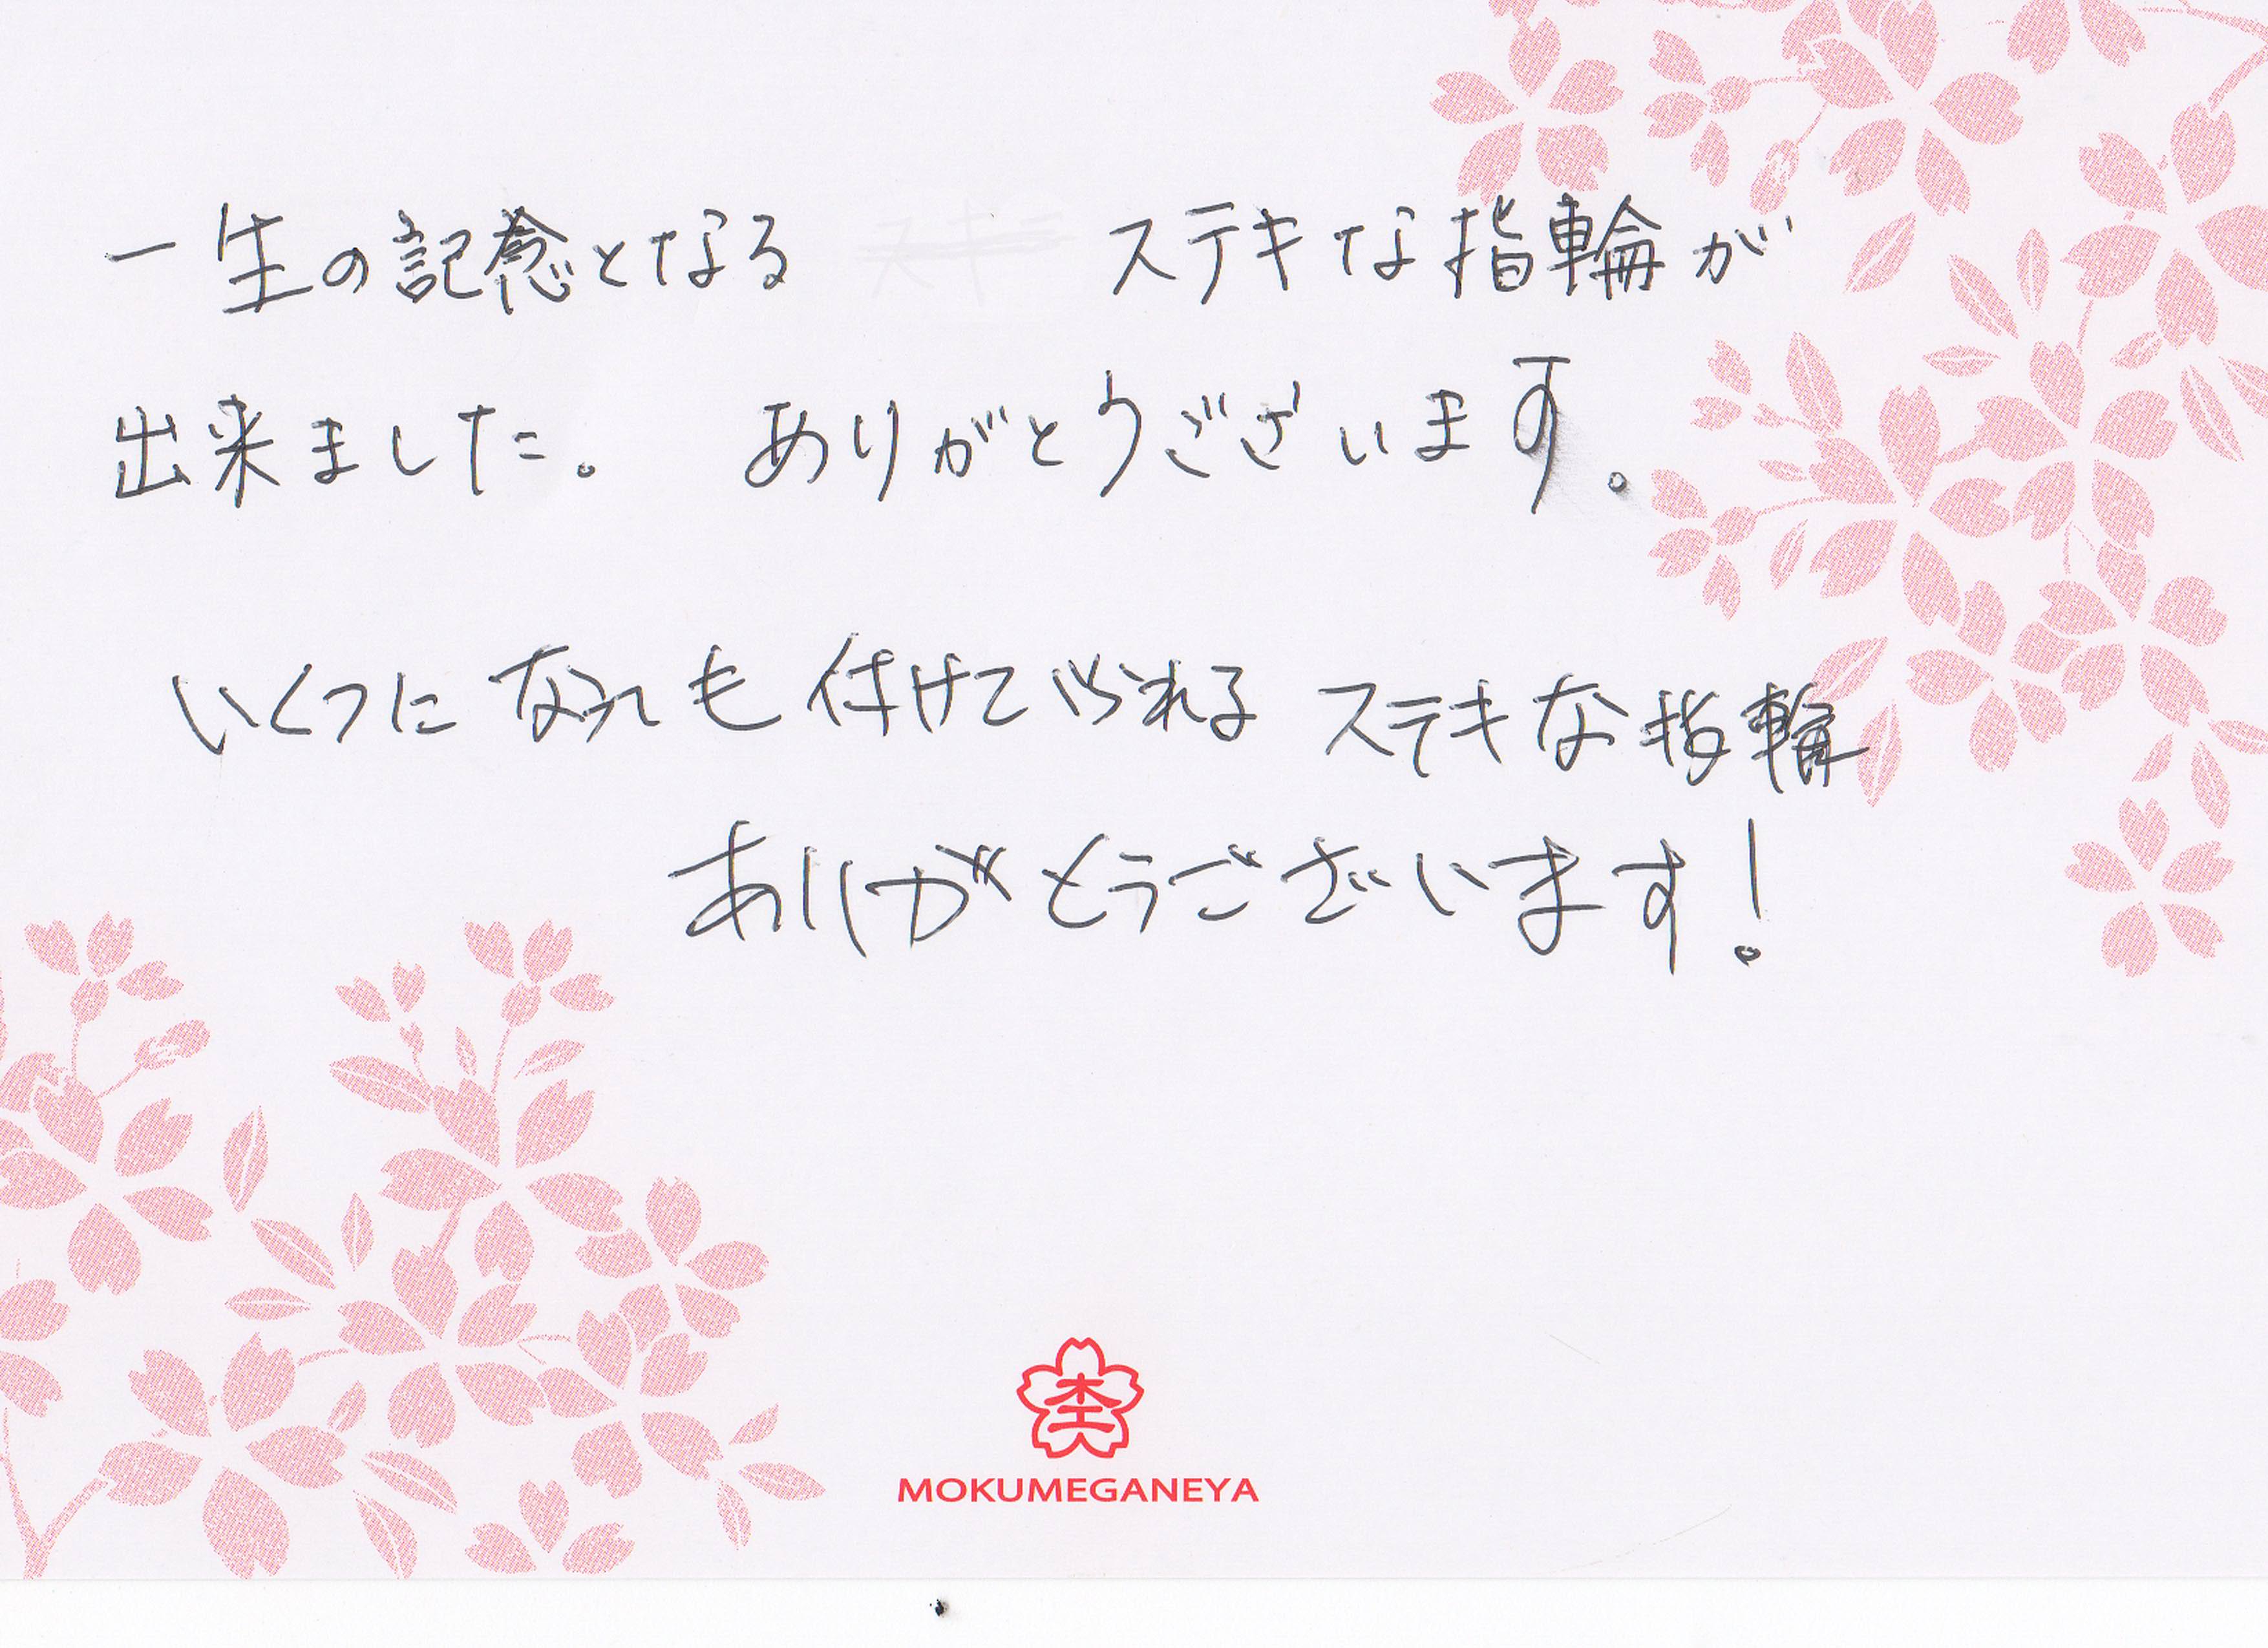 一生の記念となる ステキな指輪が
出来ました。 ありがとうございます。
いくつになっても付けていられるステキな指輪
ありがとうございます!
杢
MOKUMEGANEYA